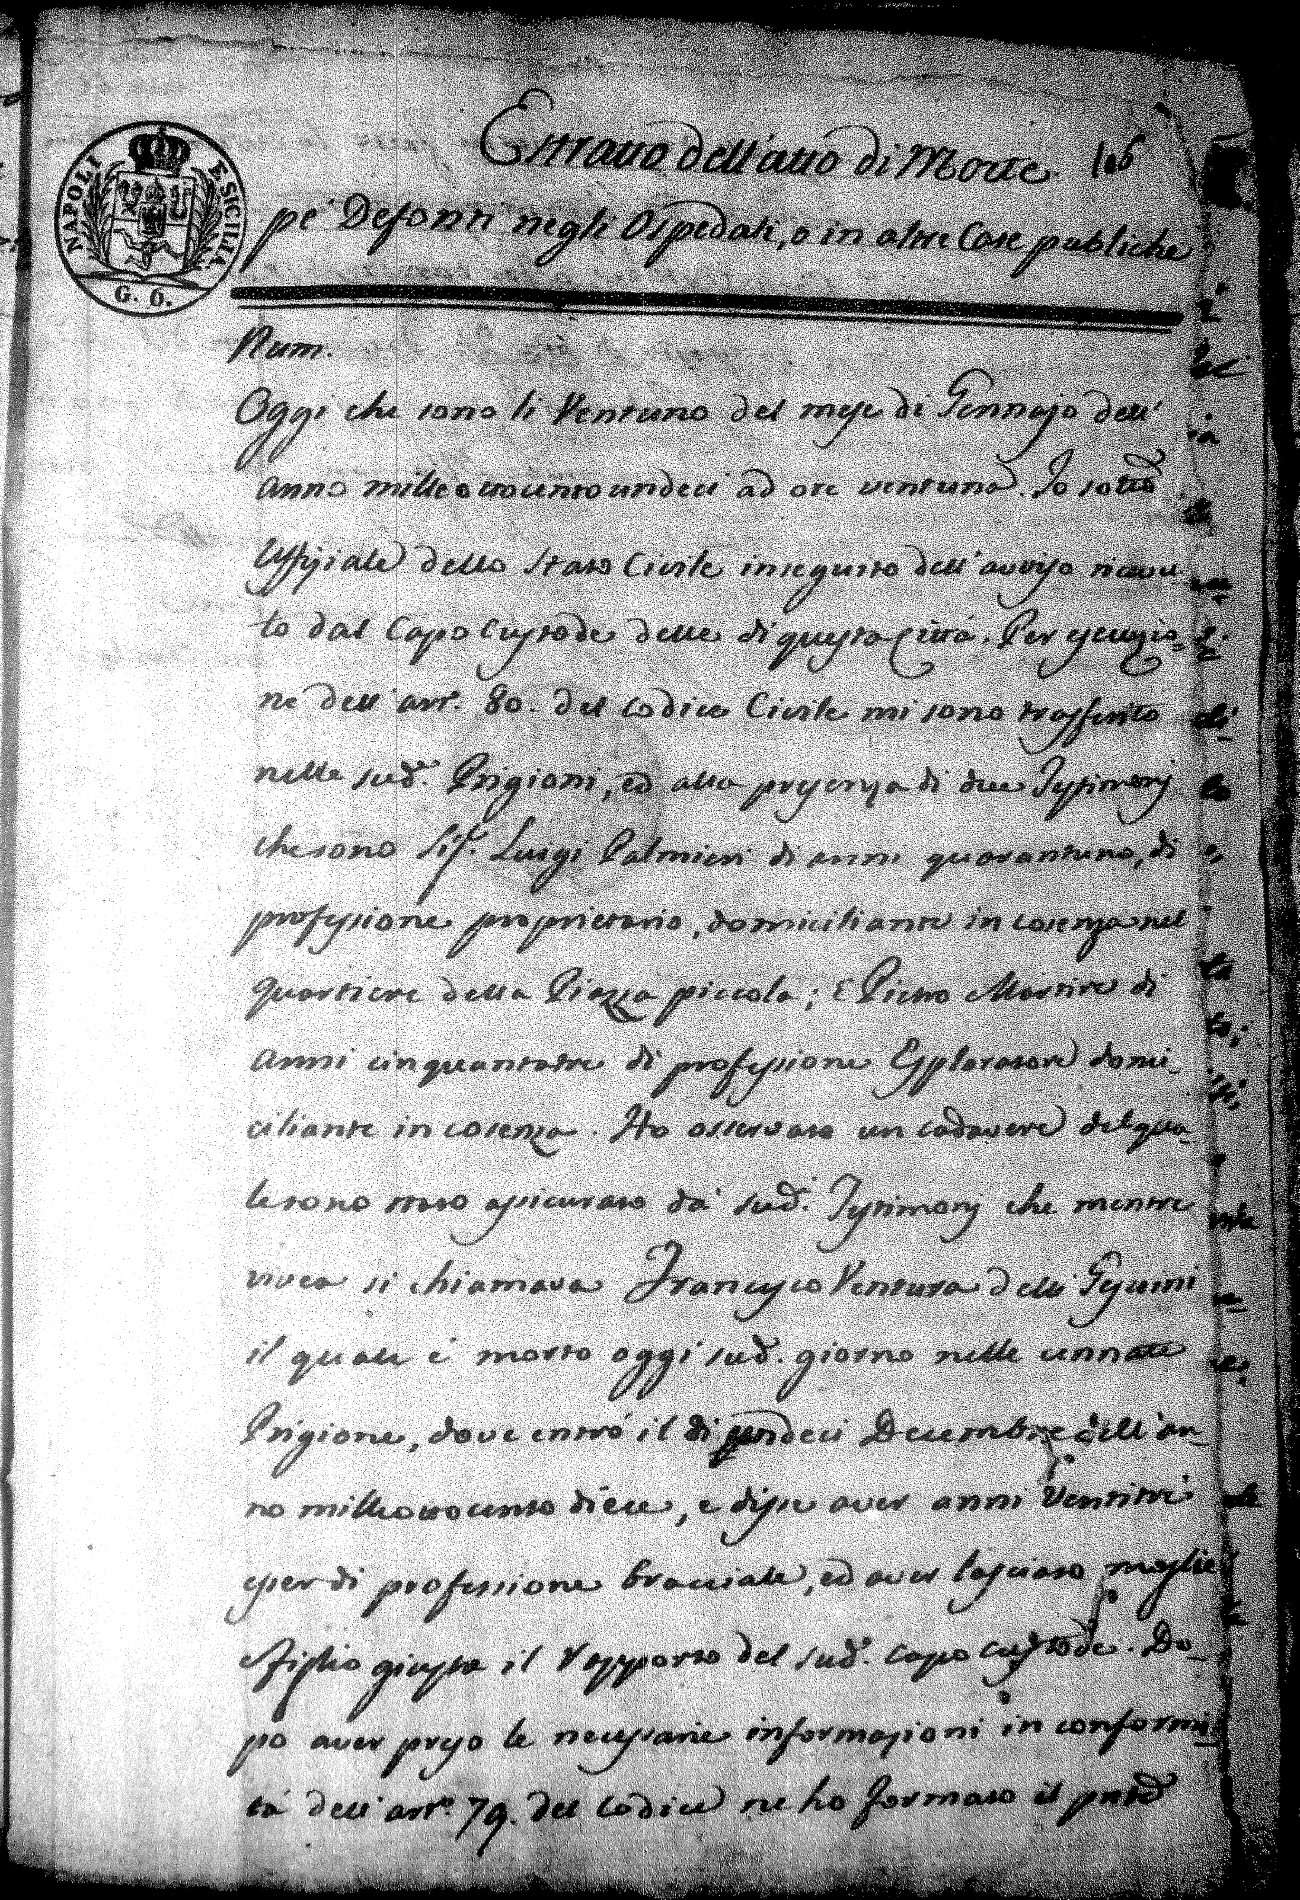 Estratto dell'atto di Morte. 106
pe' Defonti negli Ospedali, o in altre Case publiche
NAPOLI E SICILIA
G. 6.
Num.
Oggi che sono li Ventuno del mese di Gennajo dell'
anno mille ottocento undeci ad ore ventuna. Io sotto
Uffiziale dello Stato Civile inseguito dell'avviso ricevu
to dal Capo Custode delle di questa Città. Per esecuzio=
ne dell'art. 80. del Codice Civile mi sono trasferito
nelle sud.e Prigioni, ed alla presenza di due Testimonj
che sono Sig.r Luigi Palmieri di anni quarantuno, di
professione proprietario, domiciliante in Cosenza nel
quartiere della Piazza piccola; E Pietro Martire di
anni cinquantatre di professione Esploratore domi=
ciliante in Cosenza. Ho osservato un cadavere del qua=
le sono stato assicurato da' sud.i Testimonj che mentre
vivea si chiamava Francesco Ventura delli
il quale è morto oggi sud.o giorno nelle cennate
Prigione, dove entrò il di undeci Decembre dell'an=
no milleottocento diece, e disse aver anni Ventitre
esser di professione bracciale, ed aver lasciato moglie
e figlio giusta il Rapporto del sud.o Capo Custode. Do=
po aver preso le necessarie informazioni in conformi=
tà dell'art.o 79. del Codice ne ho formato il pnte